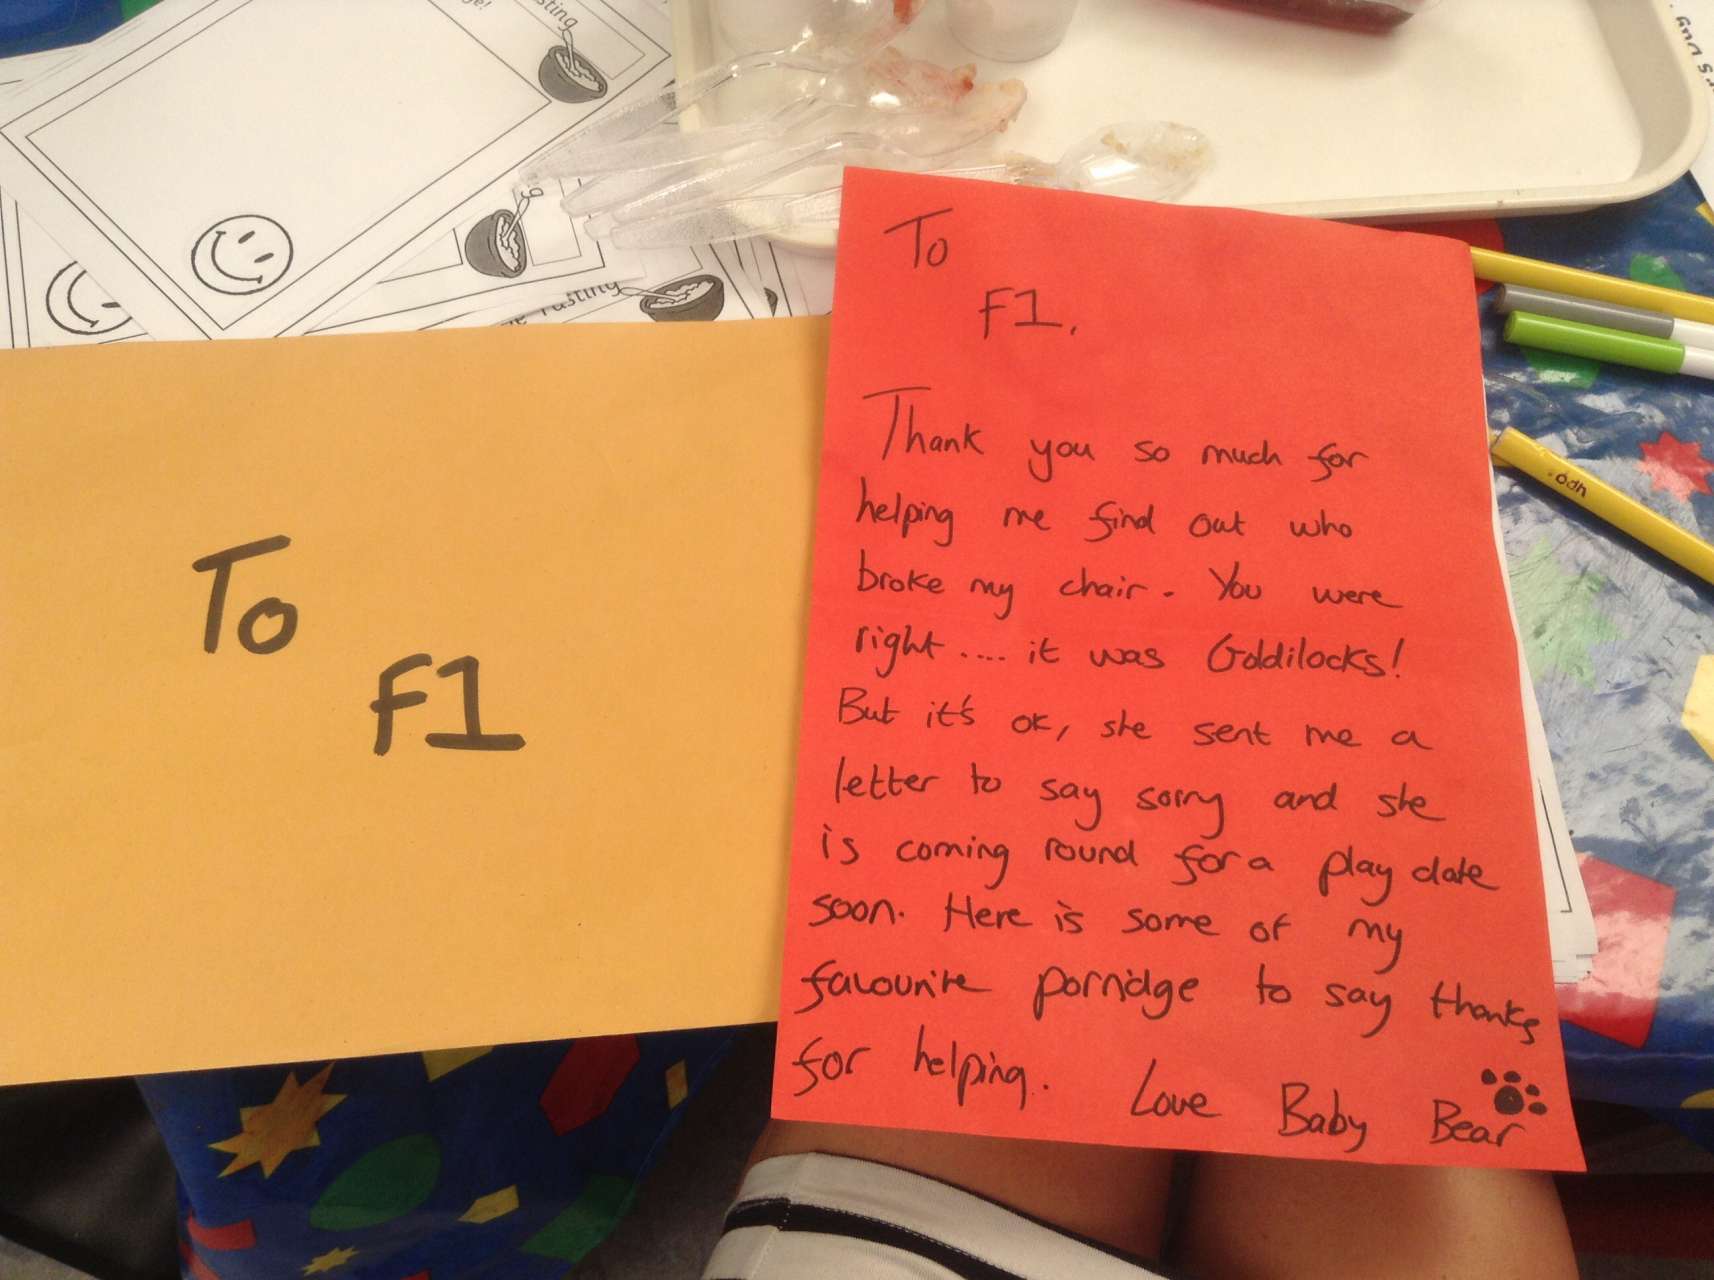 To
F1
To
F1.
Thank you so much for
helping me find out who
broke my chair. You were
right.... it was Goldilocks!
But it's ok, she sent me a
letter to say sorry and she
is coming round for a play date
soon. Here is some of my
favourite porridge to say thanks
for helping. Love Baby Bear
Tasting